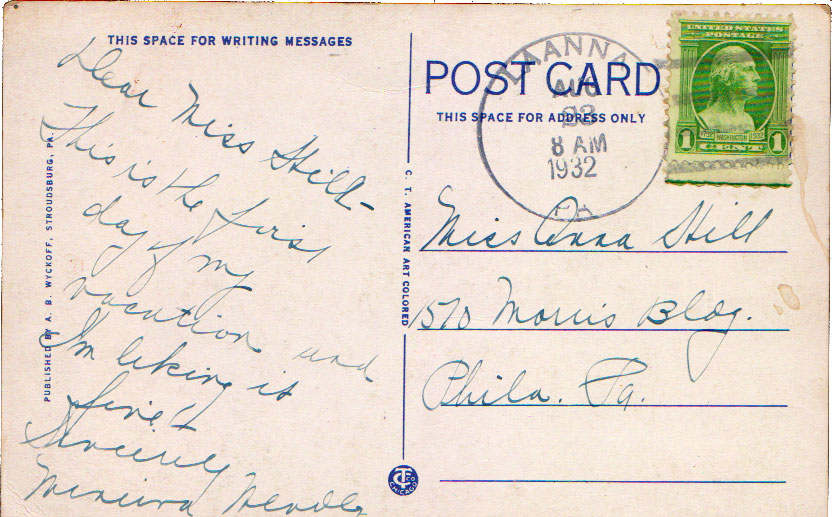 THIS SPACE FOR WRITING MESSAGES
Dear Miss Hill-
This is the first
day of my
vacation and
I'm liking it
fine!
Sincerely
PUBLISHED BY A. B. WYCKOFF, STROUDSBURG, PA.
C. T. AMERICAN ART COLORED
POST CARD
THIS SPACE FOR ADDRESS ONLY
AUG
23
8 AM
1932
PA
UNITED STATES
POSTAGE
1732 WASHINGTON 1932
1 CENT 1
Miss Anna Hill
1510 Morris Bldg.
Phila. Pa.
CT CO
CHICAGO